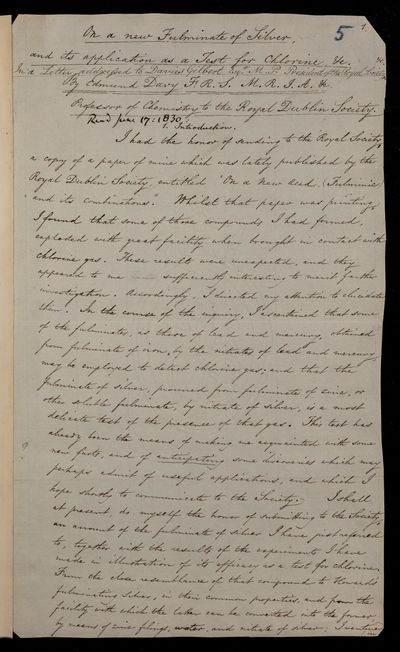 5
1.
On a new Fulminate of Silver
and its application as a Test for Chlorine &c. &c.
In a Letter addressed to Davies Gilbert Esqr. M. P. President of the Royal Society
By Edmund Davy F. R. S. M. R. I. A. &c
Professor of Chemistry to the Royal Dublin Society.
Read June 17: 1830
1. Introduction.
I had the honor of sending to the Royal Society,
a copy of a paper of mine which was lately published by the
Royal Dublin Society, entitled "On a new acid (Fulminic)
and its combinations." Whilst that paper was printing,
I found that some of those compounds I had formed,
exploded with great facility when brought in contact with
chlorine gas. These results were unexpected, and they
appeared to me sufficiently interesting to merit further
investigation. Accordingly, I directed my attention to elucidate
them. In the course of the inquiry, I ascertained that some
of the fulminates, as those of lead and mercury, obtained
from fulminate of iron, by the nitrates of lead and mercury,
may be employed to detect chlorine gas; and that the
fulminate of silver, procured from fulminate of zinc, or
other soluble fulminate, by nitrate of silver, is a most
delicate test of the presence of that gas. This test has
already been the means of making me acquainted with some
new facts, and of anticipating some discoveries which may
perhaps admit of useful applications, and which I
hope shortly to communicate to the Society. I shall
at present, do myself the honor of submitting to the Society,
an account of the fulminate of silver I have just referred
to, together with the results of the experiments I have
made in illustration of its efficacy as a test for chlorine.
From the close resemblance of that compound to Howard's
fulminating silver, in their common properties, and from the
facility with which the latter can be converted into the former
by means of zinc filings, water, and nitrate of silver; I venture